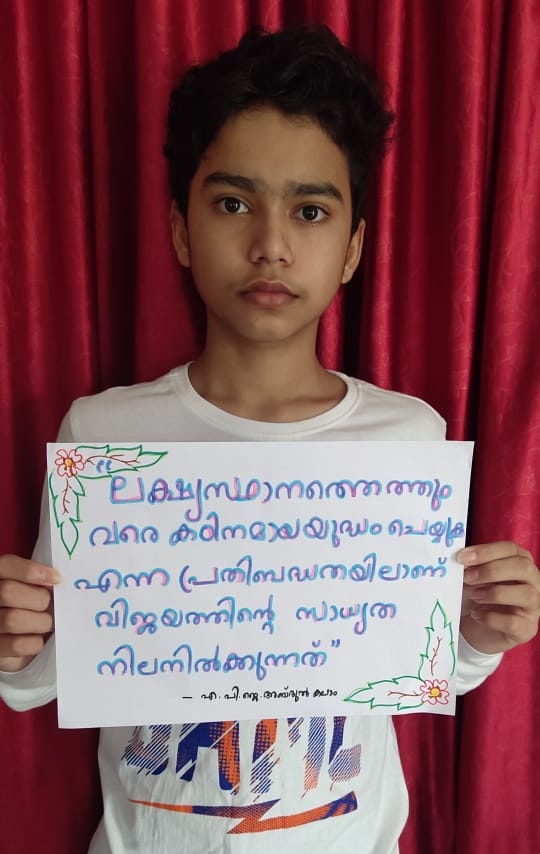 “ ലക്ഷ്യസ്ഥാനത്തെത്തും
വരെ കഠിനമായയുദ്ധം ചെയ്യുക
എന്ന പ്രതിബദ്ധതയിലാണ്
വിജയത്തിന്റെ സാധ്യത
നിലനിൽക്കുന്നത് ”
— എ. പി. ജെ. അബ്ദുൽ കലാം